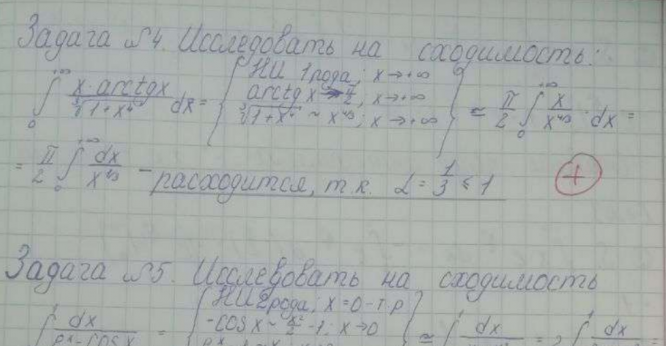 Задача №4. Исследовать на сходимость:
∫₀^{+∞} x·arctgx / ∛(1+x⁴) dx = { НИ 1 рода, x→+∞
arctg x → π/2, x→+∞
∛(1+x⁴) ~ x^{4/3}; x→+∞ } ≃ π/2 ∫₀^{+∞} x / x^{4/3} · dx =
= π/2 ∫₀^{+∞} dx / x^{1/3} - расходится, т.к. α = 1/3 < 1 +
Задача №5. Исследовать на сходимость
∫ dx / = { НИ 2 рода; x=0 - т.р
-cosx ~ x²/2 - 1; x→0
} ≃ ∫ dx = ∫ dx =